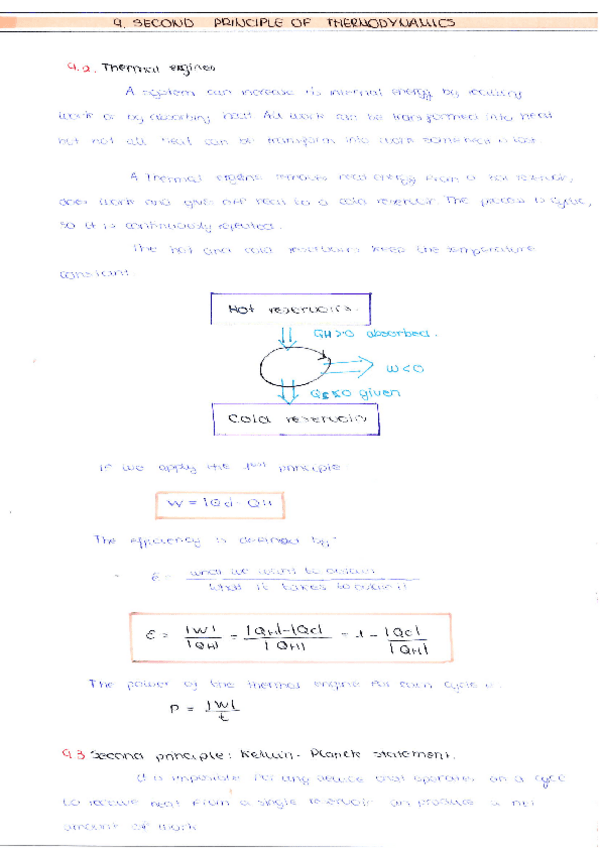 9. SECOND PRINCIPLE OF THERMODYNAMICS
9.2. Thermal engines
A system can increase its internal energy by
work or by absorbing heat. All work can be transformed into heat
but not all heat can be transform into work
A thermal engine removes heat energy from a hot reservoir,
does work and gives off heat to a cold reservoir. The process is cyclic,
so it is continuously repeated.
The hot and cold reservoirs keep the temperature
constant
Hot reservoirs.
QH>0 absorbed.
W<0
given
Cold reservoir
If we apply the principle
W = |Qc| - QH
The efficiency is defined by:
ε = what we want to obtain
what it takes to
ε = |W| / |QH| = |QH|-|Qc| / |QH| = 1 - |Qc| / |QH|
The power of the thermal engine each cycle is.
P = |W| / t
9.3 Second principle: Kelvin-Planck statement.
It is imposible for any device that operates on a cycle
to receive heat from a single reservoir an produce a net
amount of work